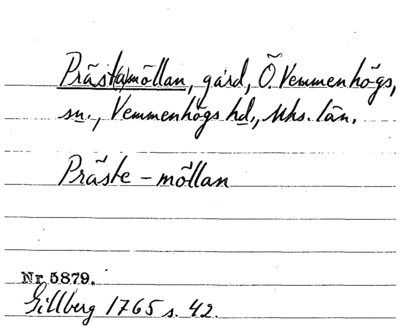 Präst(a)möllan, gård, Ö. Vemmenhögs,
sn., Vemmenhögs hd., Mhs. län.
Präste-möllan
Nr 5879.
Gillberg 1765 s. 42.